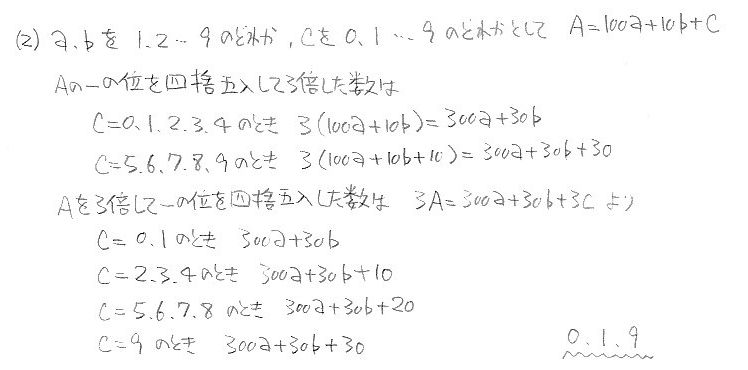 (2) a.bを1.2…9のどれか,Cを0.1…9のどれかとして A=100a+10b+C
Aの一の位を四捨五入して3倍した数は
C=0.1.2.3.4のとき 3(100a+10b)=300a+30b
C=5.6.7.8.9のとき 3(100a+10b+10)=300a+30b+30
Aを3倍して一の位を四捨五入した数は 3A=300a+30b+3Cより
C=0.1のとき 300a+30b
C=2.3.4のとき 300a+30b+10
C=5.6.7.8のとき 300a+30b+20
C=9のとき 300a+30b+30
0.1.9